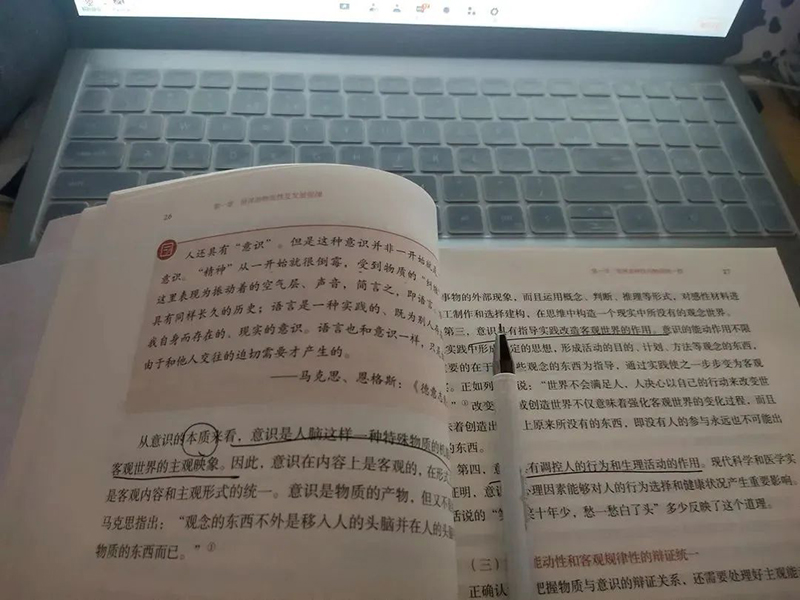 26
人还具有“意识”。但是这种意识并非一开始就是
意识。“精神”从一开始就很倒霉，受到物质的“纠缠
这里表现为振动着的空气层、声音，简言之，即语言
具有同样长久的历史；语言是一种实践的、既为别人存
我自身而存在的、现实的意识。语言也和意识一样，只是
由于和他人交往的迫切需要才产生的。
——马克思、恩格斯：《德意志
从意识的本质来看，意识是人脑这样一种特殊物质的机
客观世界的主观映象。因此，意识在内容上是客观的，在形式
是客观内容和主观形式的统一。意识是物质的产物，但又不
马克思指出：“观念的东西不外是移入人的头脑并在人的头
物质的东西而已。”①
27
事物的外部现象，而且运用概念、判断、推理等形式，对感性材料进
工制作和选择建构，在思维中构造一个现实中所没有的观念世界。
第三，意识具有指导实践改造客观世界的作用。意识的能动作用不限
实践中形成 定的思想，形成活动的目的、计划、方法等观念的东西，
要的在于 些观念的东西为指导，通过实践使之一步步变为客观
。正如列 说：“世界不会满足人，人决心以自己的行动来改变世
”①改变 或创造世界不仅意味着强化客观世界的变化过程，而且
味着创造出 上原来所没有的东西，即没有人的参与永远也不可能出
的东西。
第四，意 有调控人的行为和生理活动的作用。现代科学和医学实
证明，意 心理因素能够对人的行为选择和健康状况产生重要影响。
话说的“笑 笑十年少，愁一愁白了头”多少反映了这个道理。
（三） 能动性和客观规律性的辩证统一
正确认 把握物质与意识的辩证关系，还需要处理好主观能